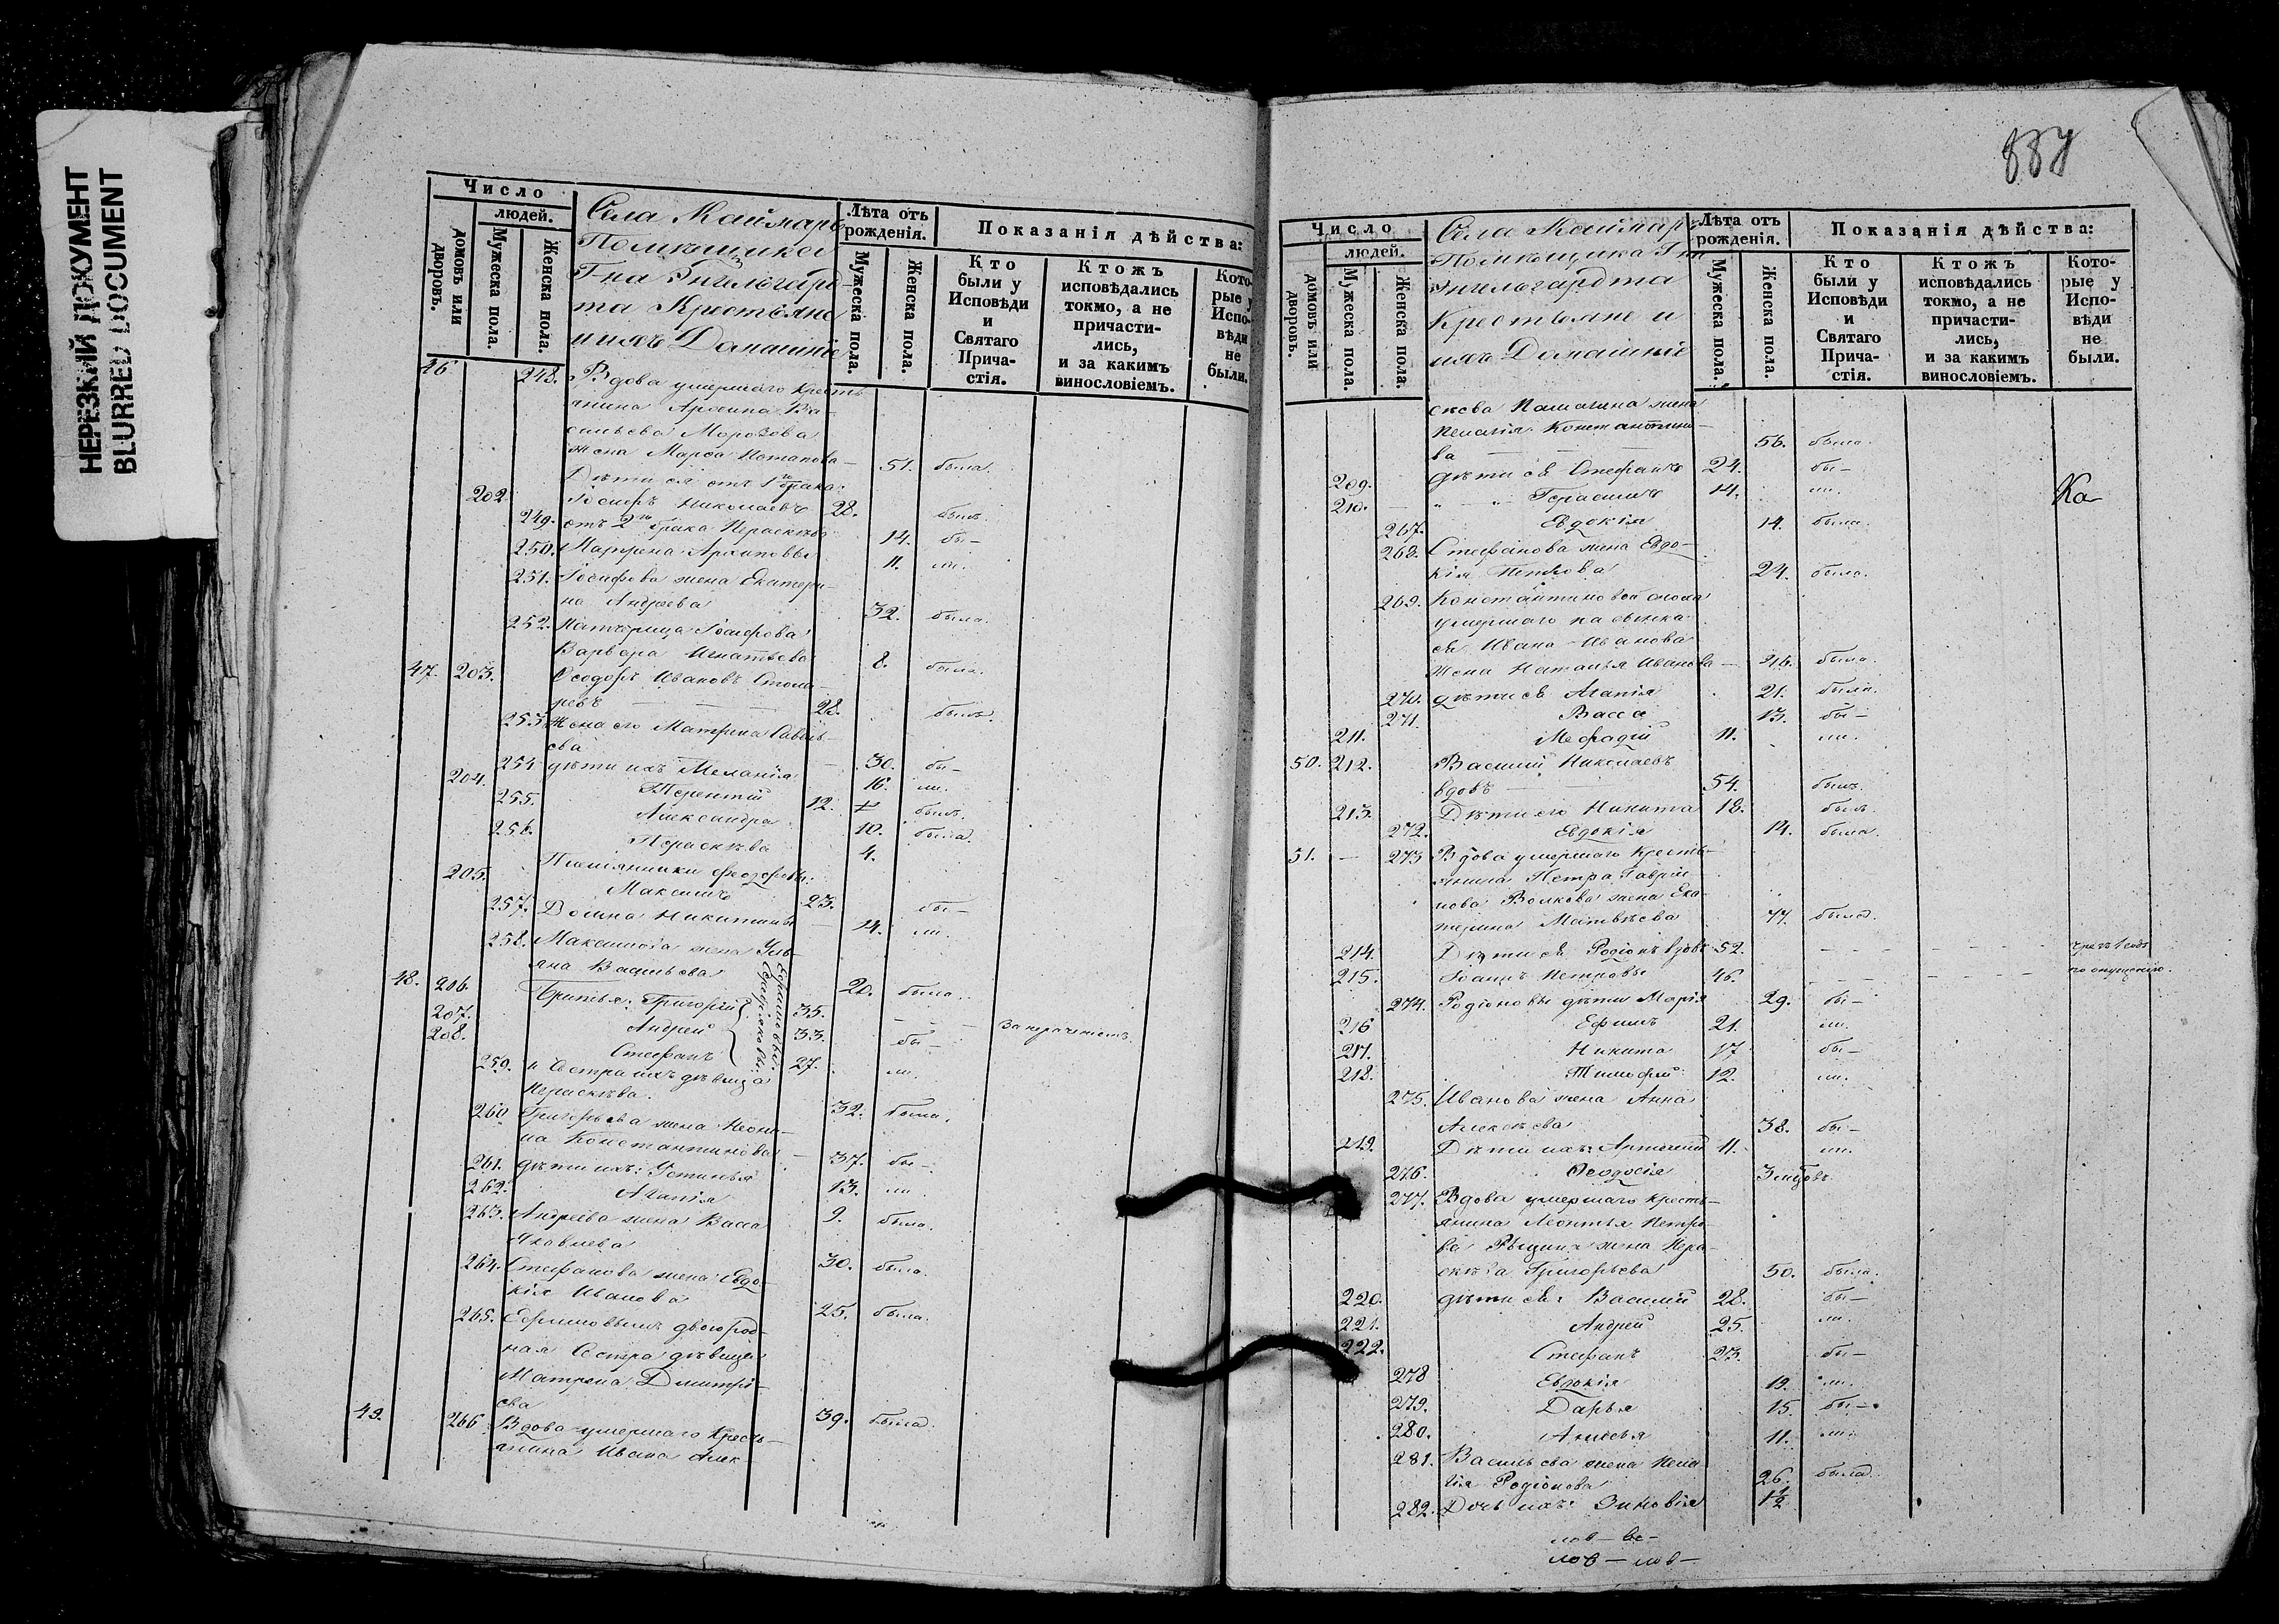 НЕРЕЗКИЙ ДОКУМЕНТ
BLURRED DOCUMENT
Число
людей.
домовъ или дворовъ.
Мужеска пола.
Женска пола.
Села Каймаръ
Помѣщика
Г-на Энгельгард-
та Крестьяне
и ихъ Домашніе
Лѣта отъ
рожденія.
Мужеска пола.
Женска пола.
Показанія дѣйства:
Кто
были у
Исповѣди
и
Святаго
Прича-
стія.
Ктожъ
исповѣдались
токмо, а не
причасти-
лись,
и за какимъ
винословіемъ.
Кото-
рые у
Испо-
вѣди
не
были.
46 248. Вдова умершаго кресть-
янина Архипа Ва-
сильева Морозова
жена Марѳа Потапова — 51. была.
Дѣти ея отъ 1го брака:
202. Іосифъ Николаевъ 28. былъ.
249. отъ 2го брака Параскева 14. бы-
250. Марѳена Архиповы 11. ли.
251. Іосифова жена Екатери-
на Андреева 32. была.
252. Падчерица Іосифова
Варвара Игнатьева 8. была.
47. 203. Ѳеодоръ Ивановъ Столя-
ревъ 28. былъ.
253. Жена его Матрена Савель-
ева 30. бы-
254 дѣти ихъ Меланія 16. ли.
204. Терентій 12. былъ.
255. Александра 10. была.
256. Параскева 4.
Племянники Ѳеодоровы:
205. Максимъ 23. бы-
257. Домна Никитины — 14. ли.
258. Максимова жена Улі-
яна Васильева 20. была.
48. 206. Братья: Григорій 35. за нерачен
207. Андрей 33. бы-
208. Стефанъ 27. ли.
Ефимовы
259. и Сестра ихъ дѣвица
Параскева. 32. была.
260 Григорьева жена Неони-
ла Константинова — 37. бы-
261. дѣти ихъ: Устинья 13. ли.
262. Агапія 9. была.
263. Андреева жена Васса
Яковлева 30. была.
264. Стефанова жена Евдо-
кія Иванова 25. была.
265. Ефимовымъ двоюрод-
ная Сестра дѣвица
Матрена Дмитрі-
ева 39. была.
49. 266 Вдова умершаго Кресть-
янина Ивана Алек-
887
Число
людей.
домовъ или дворовъ.
Мужеска пола.
Женска пола.
Села Каймаръ
Помѣщика Г-на
Энгельгардта
Крестьяне и
ихъ Домашніе
Лѣта отъ
рожденія.
Мужеска пола.
Женска пола.
Показанія дѣйства:
Кто
были у
Исповѣди
и
Святаго
Прича-
стія.
Ктожъ
исповѣдались
токмо, а не
причасти-
лись,
и за какимъ
винословіемъ.
Кото-
рые у
Испо-
вѣди
не
были.
сѣева жена
Пелагія Константино-
ва 56. была.
209. дѣти ея Стефанъ 24. бы-
210. Герасимъ 14. ли. Ка-
267. Евдокія 14. была.
268. Стефанова жена Евдо-
кія Петрова 24. была.
269. Константиновой сноха
умершаго пасынка
ея Ивана Иванова
жена Наталья Иванова — 46. была.
270. дѣти ея Агапія 21. была.
271. Васса 13. бы-
211. Меѳодій 11. ли.
50. 212. Василий Николаевъ
вдовъ 54. былъ.
213. Дѣти его Никита 18. былъ.
272. Евдокія 14. была.
51. — 273 Вдова умершаго кресть-
янина Петра Гаврі-
лова Волкова жена Ека-
терина Матвѣева 77. была.
214. Дѣти ея Родіонъ вдовъ 52.
215. Іоаннъ Петровы 46. по опущенію.
274. Родіоновы дѣти Марія 29. бы-
216 Ефимъ 21. ли.
217. Никита 17 бы-
218. Тимофей 12. ли.
275. Иванова жена Анна
Алексѣева 38. бы-
219. Дѣти ихъ: Артемій 11. ли.
276. Ѳеодосія
277. Вдова умершаго кресть-
янина Леонтья Петро-
ва жена Пара-
скева Григорьева 50. была.
220. дѣти ея: Василий 28. бы-
221. Андрей 25. ли.
222. Стефанъ 23. бы-
278 Евдокія 19. ли.
279. Дарья 15. бы-
280. Анисья 11. ли.
281. Васильева жена Пела-
гія Родіонова 26. была.
282. Дочь ихъ: Зиновія 1½